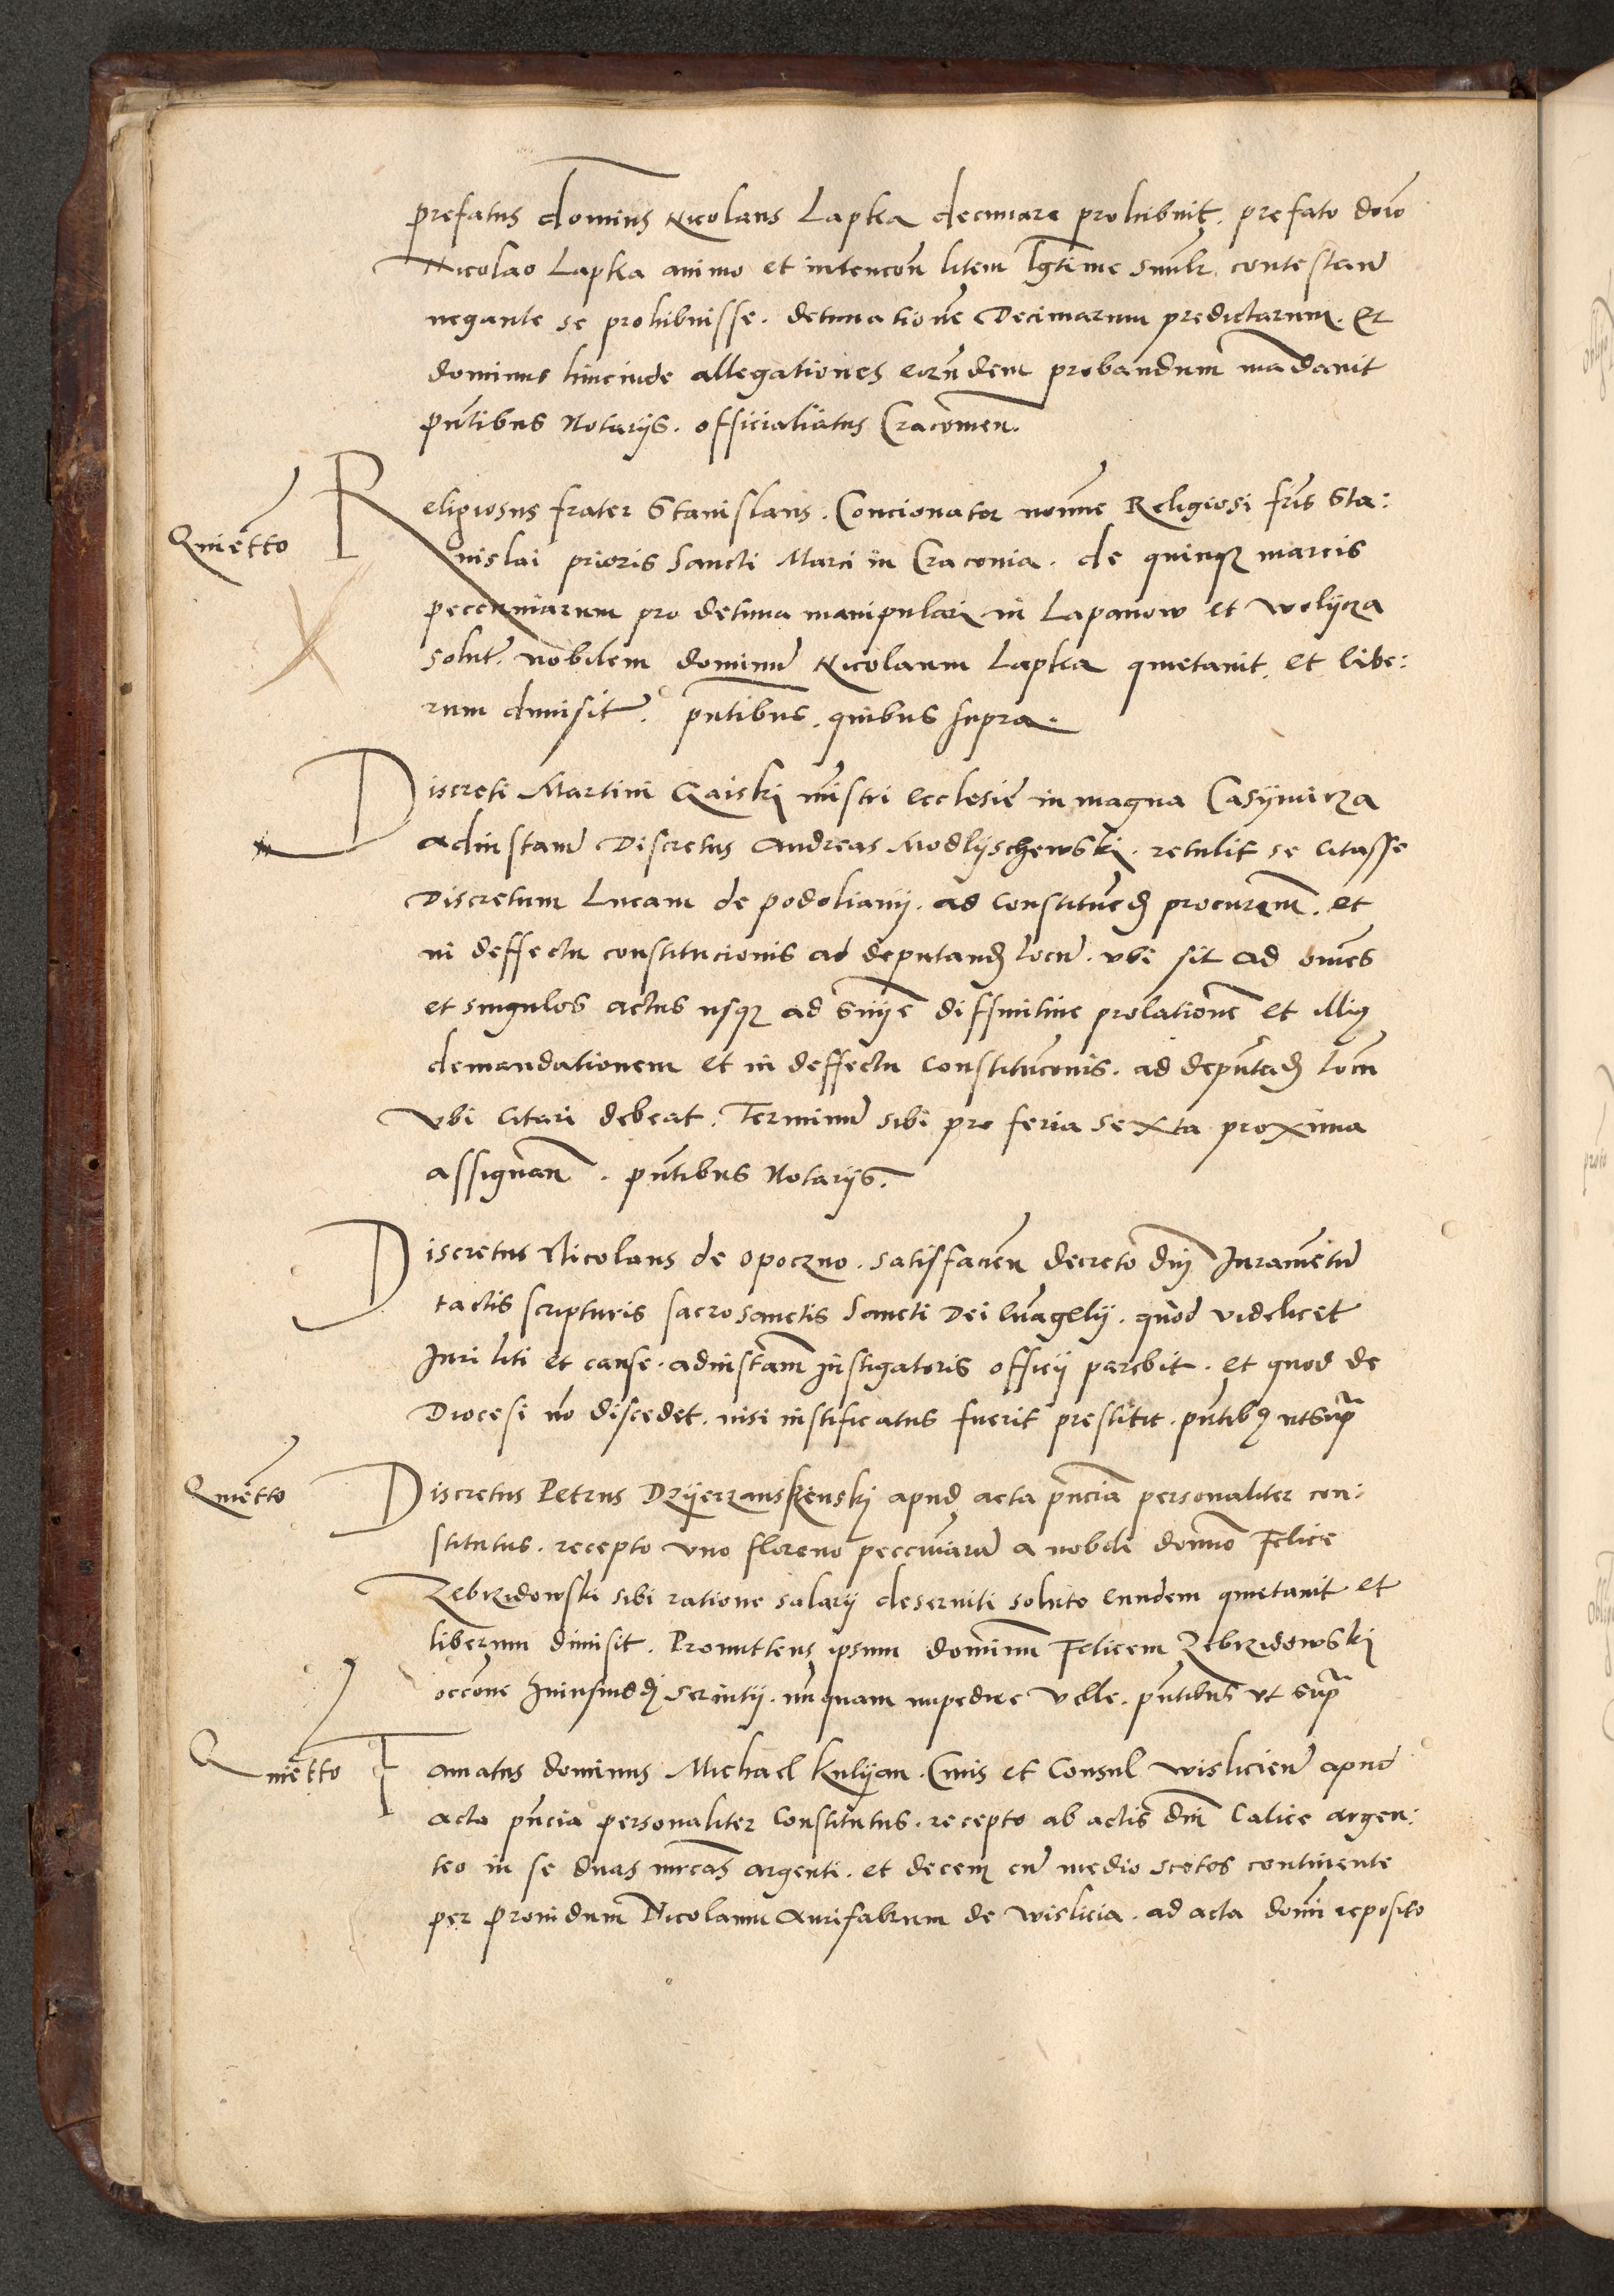 prefatus dominus Nicolaus Lapka decimare prohibuit. prefato domino
Nicolao Lapka animo et intencon litem lgtime simlr contestan
negante se prohibuisse. decimationem Decimarum predictarum. Et
dominus hincinde allegationes eorundem probandum mandavit
pntibus Notarijs. officialiatus Cracovien.
Quietto
Religiosus frater Stanislaus. Concionator nomine Religiosi fris Sta:
nislai prioris Sancti Marci in Cracovia. de quinqz marcis
peccuniarum pro decima manipulari in Lapanow et wolycza
solut. nobilem dominum Nicolaum Lapka quietavit. et libe:
rum dimisit. pntibus. quibus supra.
Discreti Martini Gaiski mistri ecclesie in magna Casymirza
adinstan Discretus Andreas Modlyschewski. retulit se citasse
Discretum Lucam de podoliany. ad constituend procurem. et
in deffectu constitucionis ad deputand locum. ubi sit ad omnes
et singulos actus usqz ad snie diffinitive prolationem et illius
demandationem et in deffectu constituconis. ad deputad locu
ubi citari debeat. Terminum sibi pro feria sexta proxima
assignan. pntibus Notarijs.
Discretus Nicolaus de opoczno. satisfacien decreto dni Juramentum
tactis scripturis sacrosanctis Sancti Dei Evagelij. quod videlicet
Juri liti et cause. adinstam Instigatoris officij parebit. et quod de
Diocesi no discedet. nisi iustificatus fuerit prestitit. pntibus utsupra
Quietto
Discretus Petrus apud acta pncia personaliter con:
stitutus. recepto uno floreno peccuniarum a nobili domino Felice
Zebrzidowski sibi ratione salarij deserviti soluto eundem quietavit et
liberum dimisit. Promittens ipsum dominum Felicem Zebrzidowski
occone huiusmodi servitij. nunquam impedire velle. pntibus ut supra
Quietto
Famatus dominus Michael Kulyan. Civis et Consul wislicien apud
acta pncia personaliter Constitutus. recepto ab actis dni Calice argen:
teo in se duas mrcas argenti. et decem cum medio scotos continente
per Providum Nicolaum Aurifabrum de wislicia. ad acta domi reposito